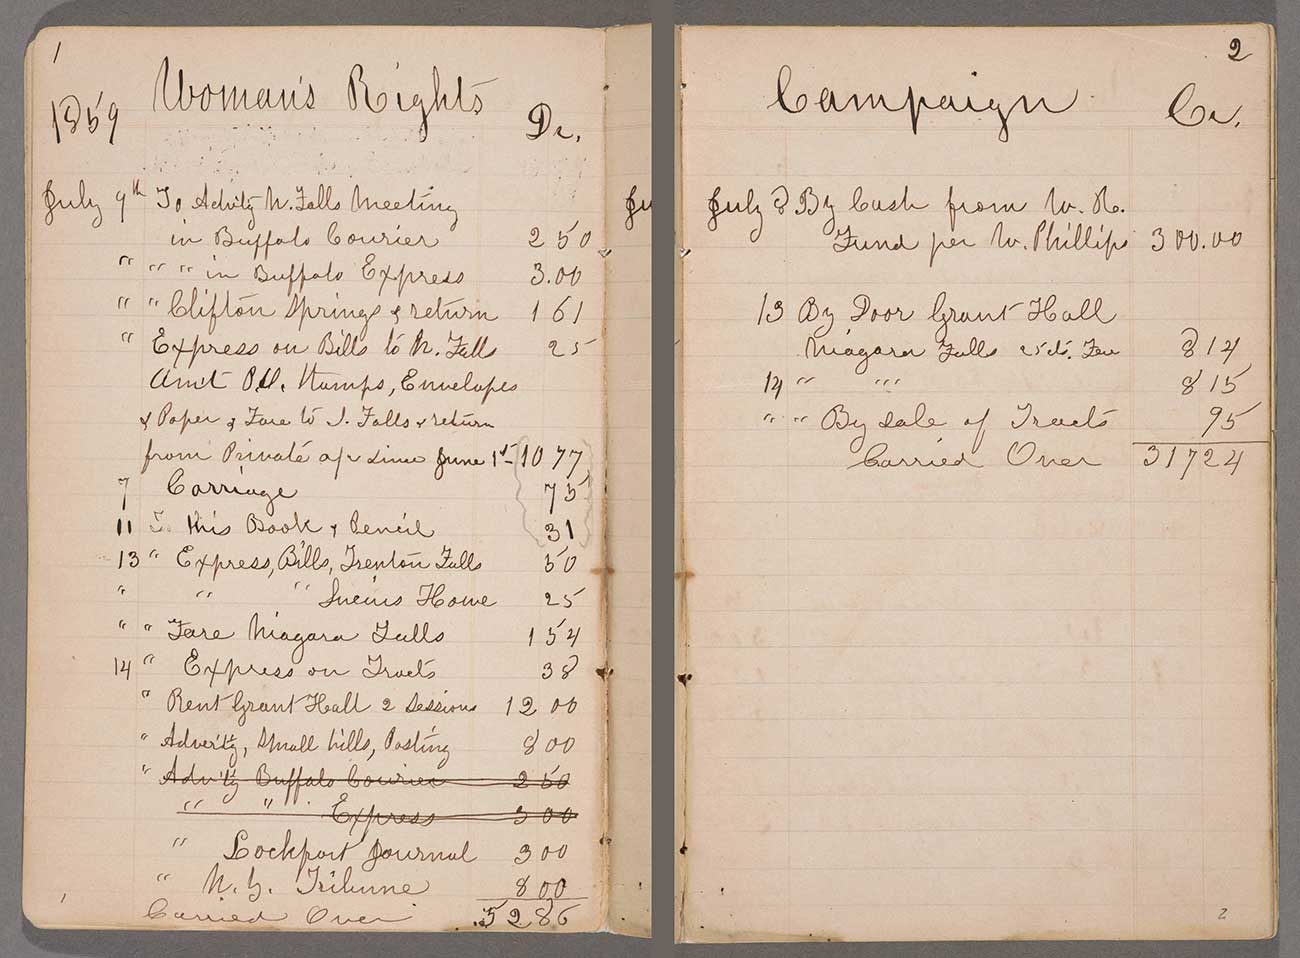 1
Woman's Rights
1859 Dr.
July 9th To Advtg N. Falls Meeting
in Buffalo Courier 2 50
" " " in Buffalo Express 3.00
" " Clifton Springs & return 1 61
" Express on Bills to N. Falls 25
Amt P.O. Stamps, Envelopes
& Paper & Fare to S. Falls & return
from Private a/c since June 1st 10 77
7 Carriage 75
11 To this Book & Pencil 31
13 " Express, Bills, Trenton Falls 50
" " " Home 25
" " Fare Niagara Falls 1 54
14 " Express on Tracts 38
" Rent Grant Hall 2 sessions 12 00
" Advertg, Small bills, Posting 8 00
" Advtg Buffalo Courier 2 50
" " Express 3 00
" Lockport Journal 3 00
" N.Y. Tribune 8 00
Carried Over 52 86
2
Campaign
Cr.
July 8 By Cash from W. R.
Fund per W. Phillips 300.00
13 By Door Grant Hall
Niagara Falls 25 cts. Fee 8 14
14 " " " 8 15
" " By sale of Tracts 95
Carried Over 317 24
2